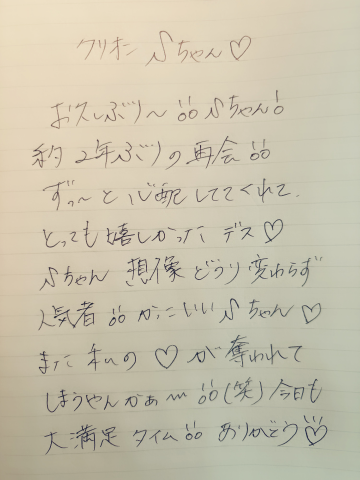 クリオン ♪ちゃん♡
お久しぶり〜!! ♪ちゃん!
約2年ぶりの再会!!
ずっ〜と心配しててくれて、
とっても嬉しかったデス♡
♪ちゃん 想像どうり変わらず
人気者!! かっこいい♪ちゃん♡
また私の♡が奪われて
しまうやんかぁ〜!!(笑)今日も
大満足タイム!! ありがとう♡